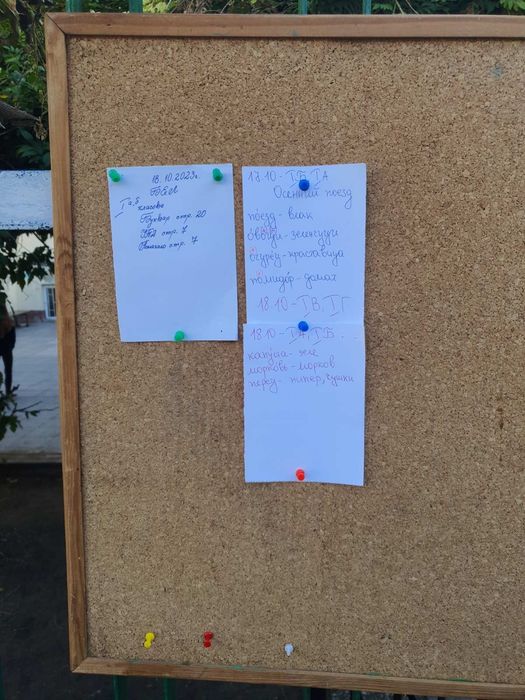 18.10.2023г.
БЕЛ
I а, б
класове
Буквар стр. 20
стр. 7
стр. 7
17.10 - IБ, IА
Осенний поезд
по́езд - влак
о́вощи - зеленчуци
огуре́ц - краставица
помидо́р - домат
18.10 - IВ, IГ
18.10 - IА, IБ
капу́ста - зеле
морко́вь - морков
пе́рец - пипер, чушки